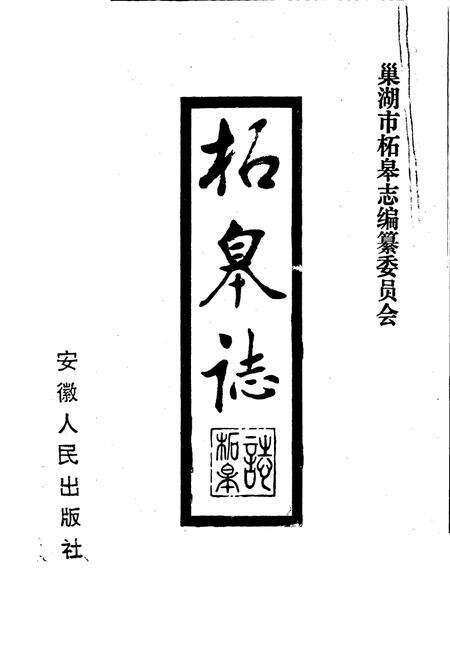 巢湖市柘皋志编纂委员会
柘皋誌
柘皋
誌
安徽人民出版社